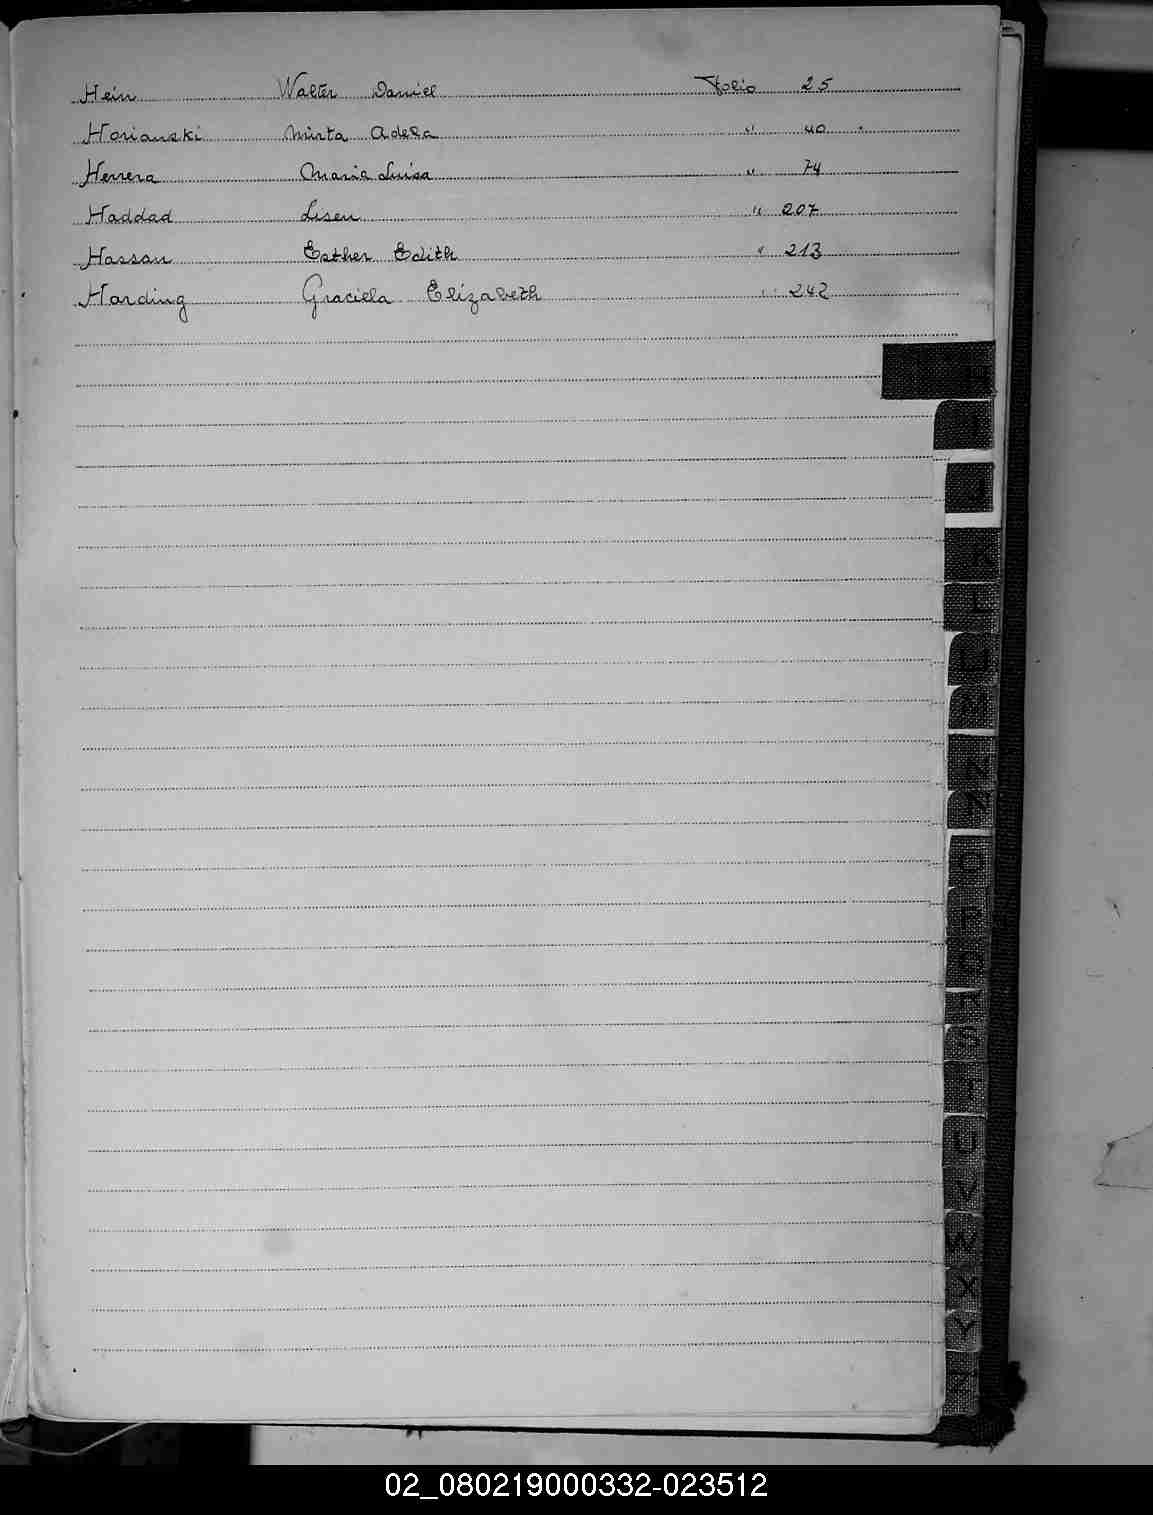 Hein Walter Daniel Folio 25
Horianski Mirta Adela " 40
Herrera Maria Luisa " 74
Haddad Lisen " 207
Hassan Esther Edith " 213
Harding Graciela Elizabeth " 242
H
I
J
K
L
M
N
Ñ
O
P
Q
R
S
T
U
V
W
X
Y
Z
02_080219000332-023512